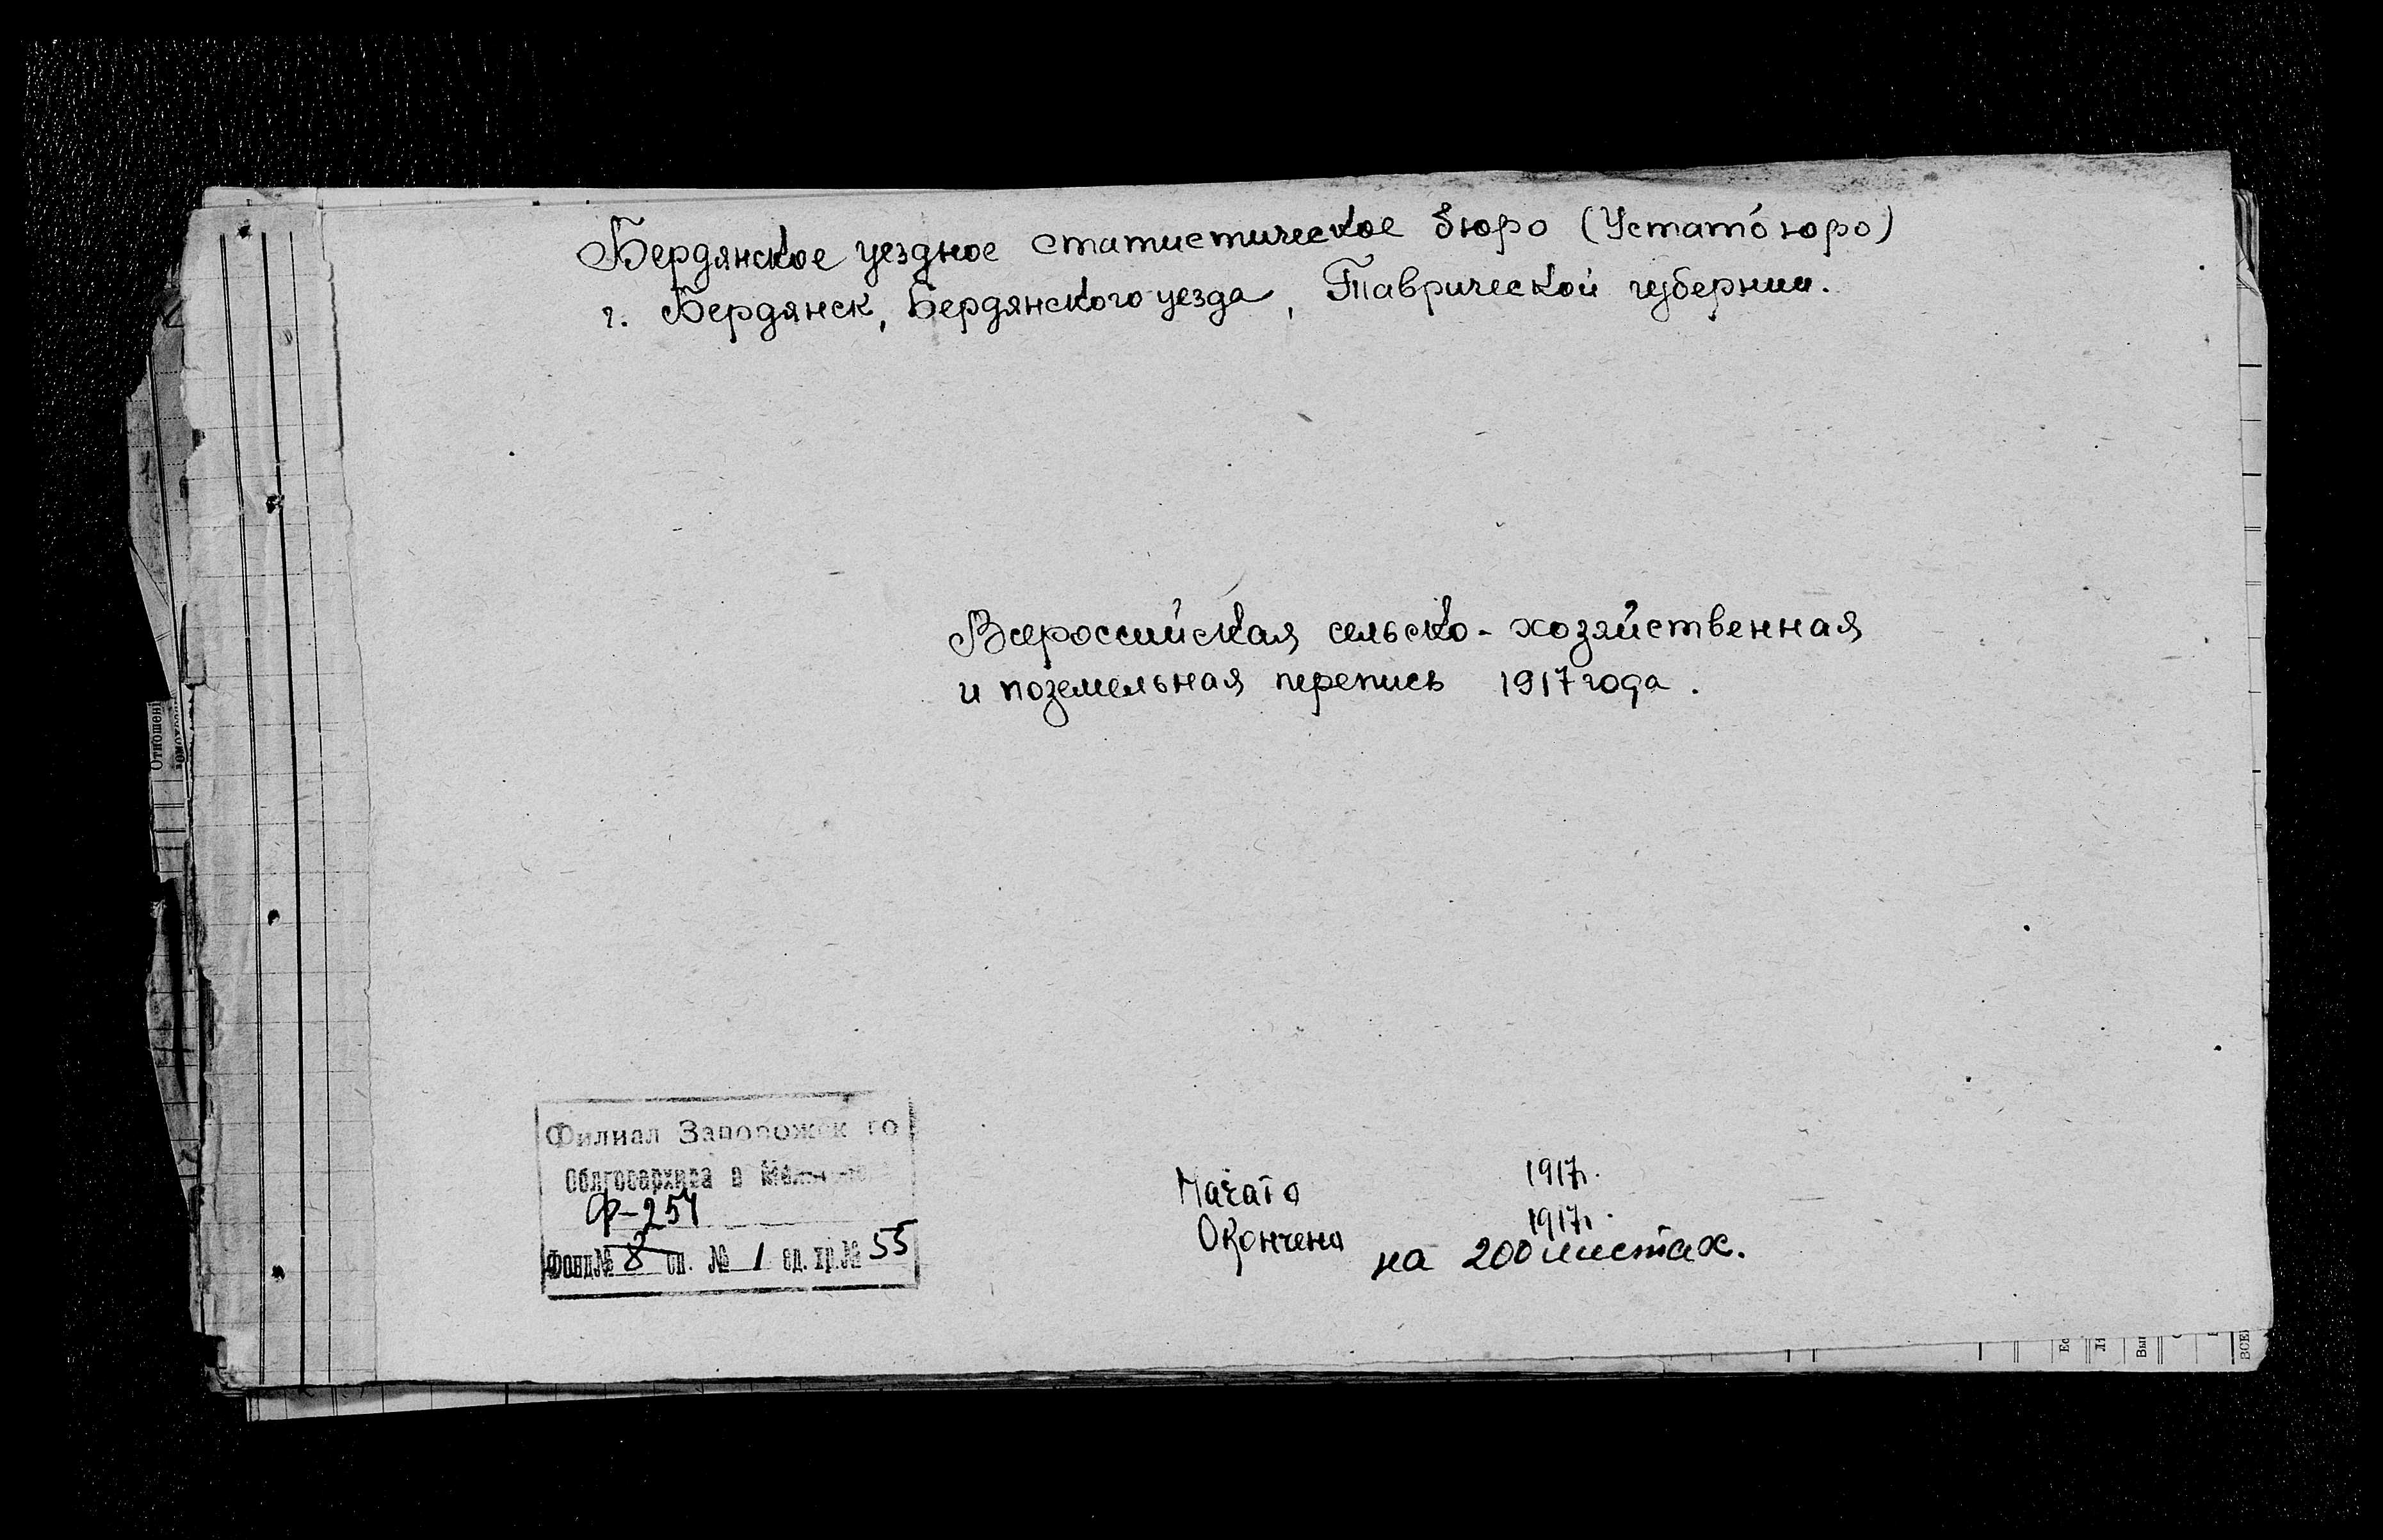 Бердянское уездное статистическое бюро (Устатбюро)
г. Бердянск, Бердянского уезда, Таврической губернии.
Всероссийская сельско-хозяйственная
и поземельная перепись 1917 года.
Филиал Запорожск го
Облгосархива в
Ф-254
Фонд № 8 оп. № 1 ед. хр. № 55
Начато 1917г.
Окончено 1917г.
на 200 листах.
Отношен